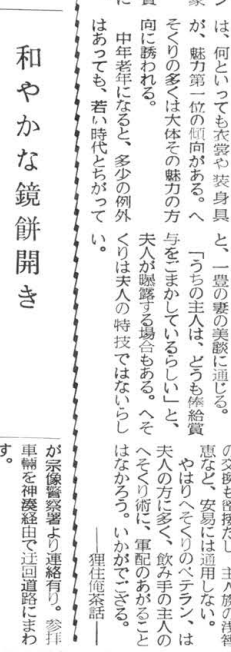 は、何といっても衣裳や装身具
が、魅力第一位の傾向がある。へ
そくりの多くは大体その魅力の方
向に誘われる。
中年老年になると、多少の例外
はあっても、若い時代とちがって
と、一豊の妻の美談に通じる。
「うちの主人は、どうも俸給賞
与をごまかしているらしい」と、
夫人が曝露する場合もある。へそ
くりは夫人の特技ではないらし
い。
恵など、安易には通用しない。
やはりへそくりのベテラン、は
夫人の方に多く、飲み手の主人の
へそくり術に、軍配のあがること
はなかろう。いかがでござる。
――狸住庵茶話――
和やかな鏡餅開き
が宗像警察署より連絡有り。参拝
車輛を神湊経由で迂回道路にまわ
す。